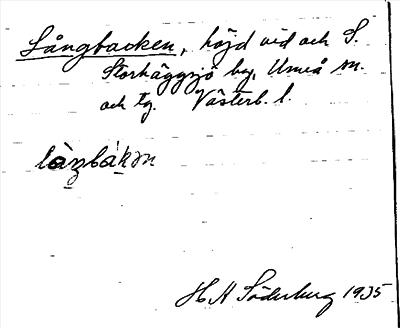 Långbacken, höjd vid och S.
Storhäggsjö by, Umeå sn.
och tg. Västerb. l.
làŋbákən
H H Söderberg 1935